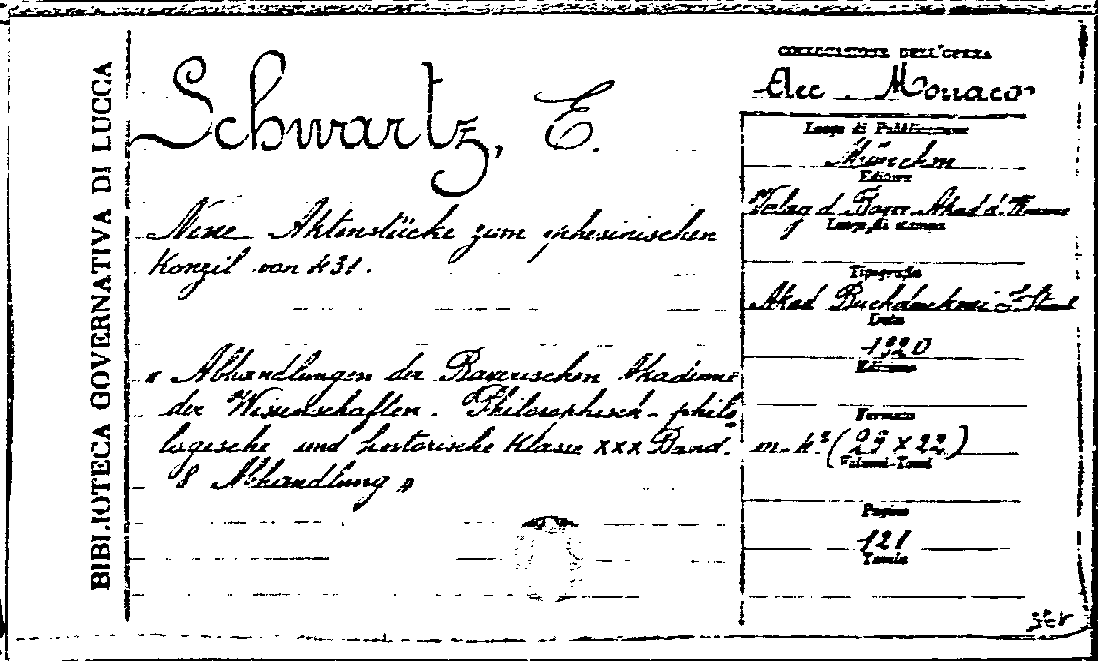 BIBLIOTECA GOVERNATIVA DI LUCCA
Schwartz, E.
Neue Aktenstücke zum ephesinischen
Konzil von 431.
« Abhandlungen der Bayerischen Akademie
der Wissenschaften. Philosophisch-philo
logische und historische Klasse XXX Band.
8 Abhandlung »
COLLOCAZIONE DELL'OPERA
Acc. Monaco
Luogo di Pubblicazione
München
Editore
Verlag d. Bayer. Akad. d.
Luogo di stampa
Tipografia
Akad. Buchdruckerei
Data
1920
Edizione
Formato
m. 4º (29 x 22)
Volumi-Tomi
Pagine
121
Tavole